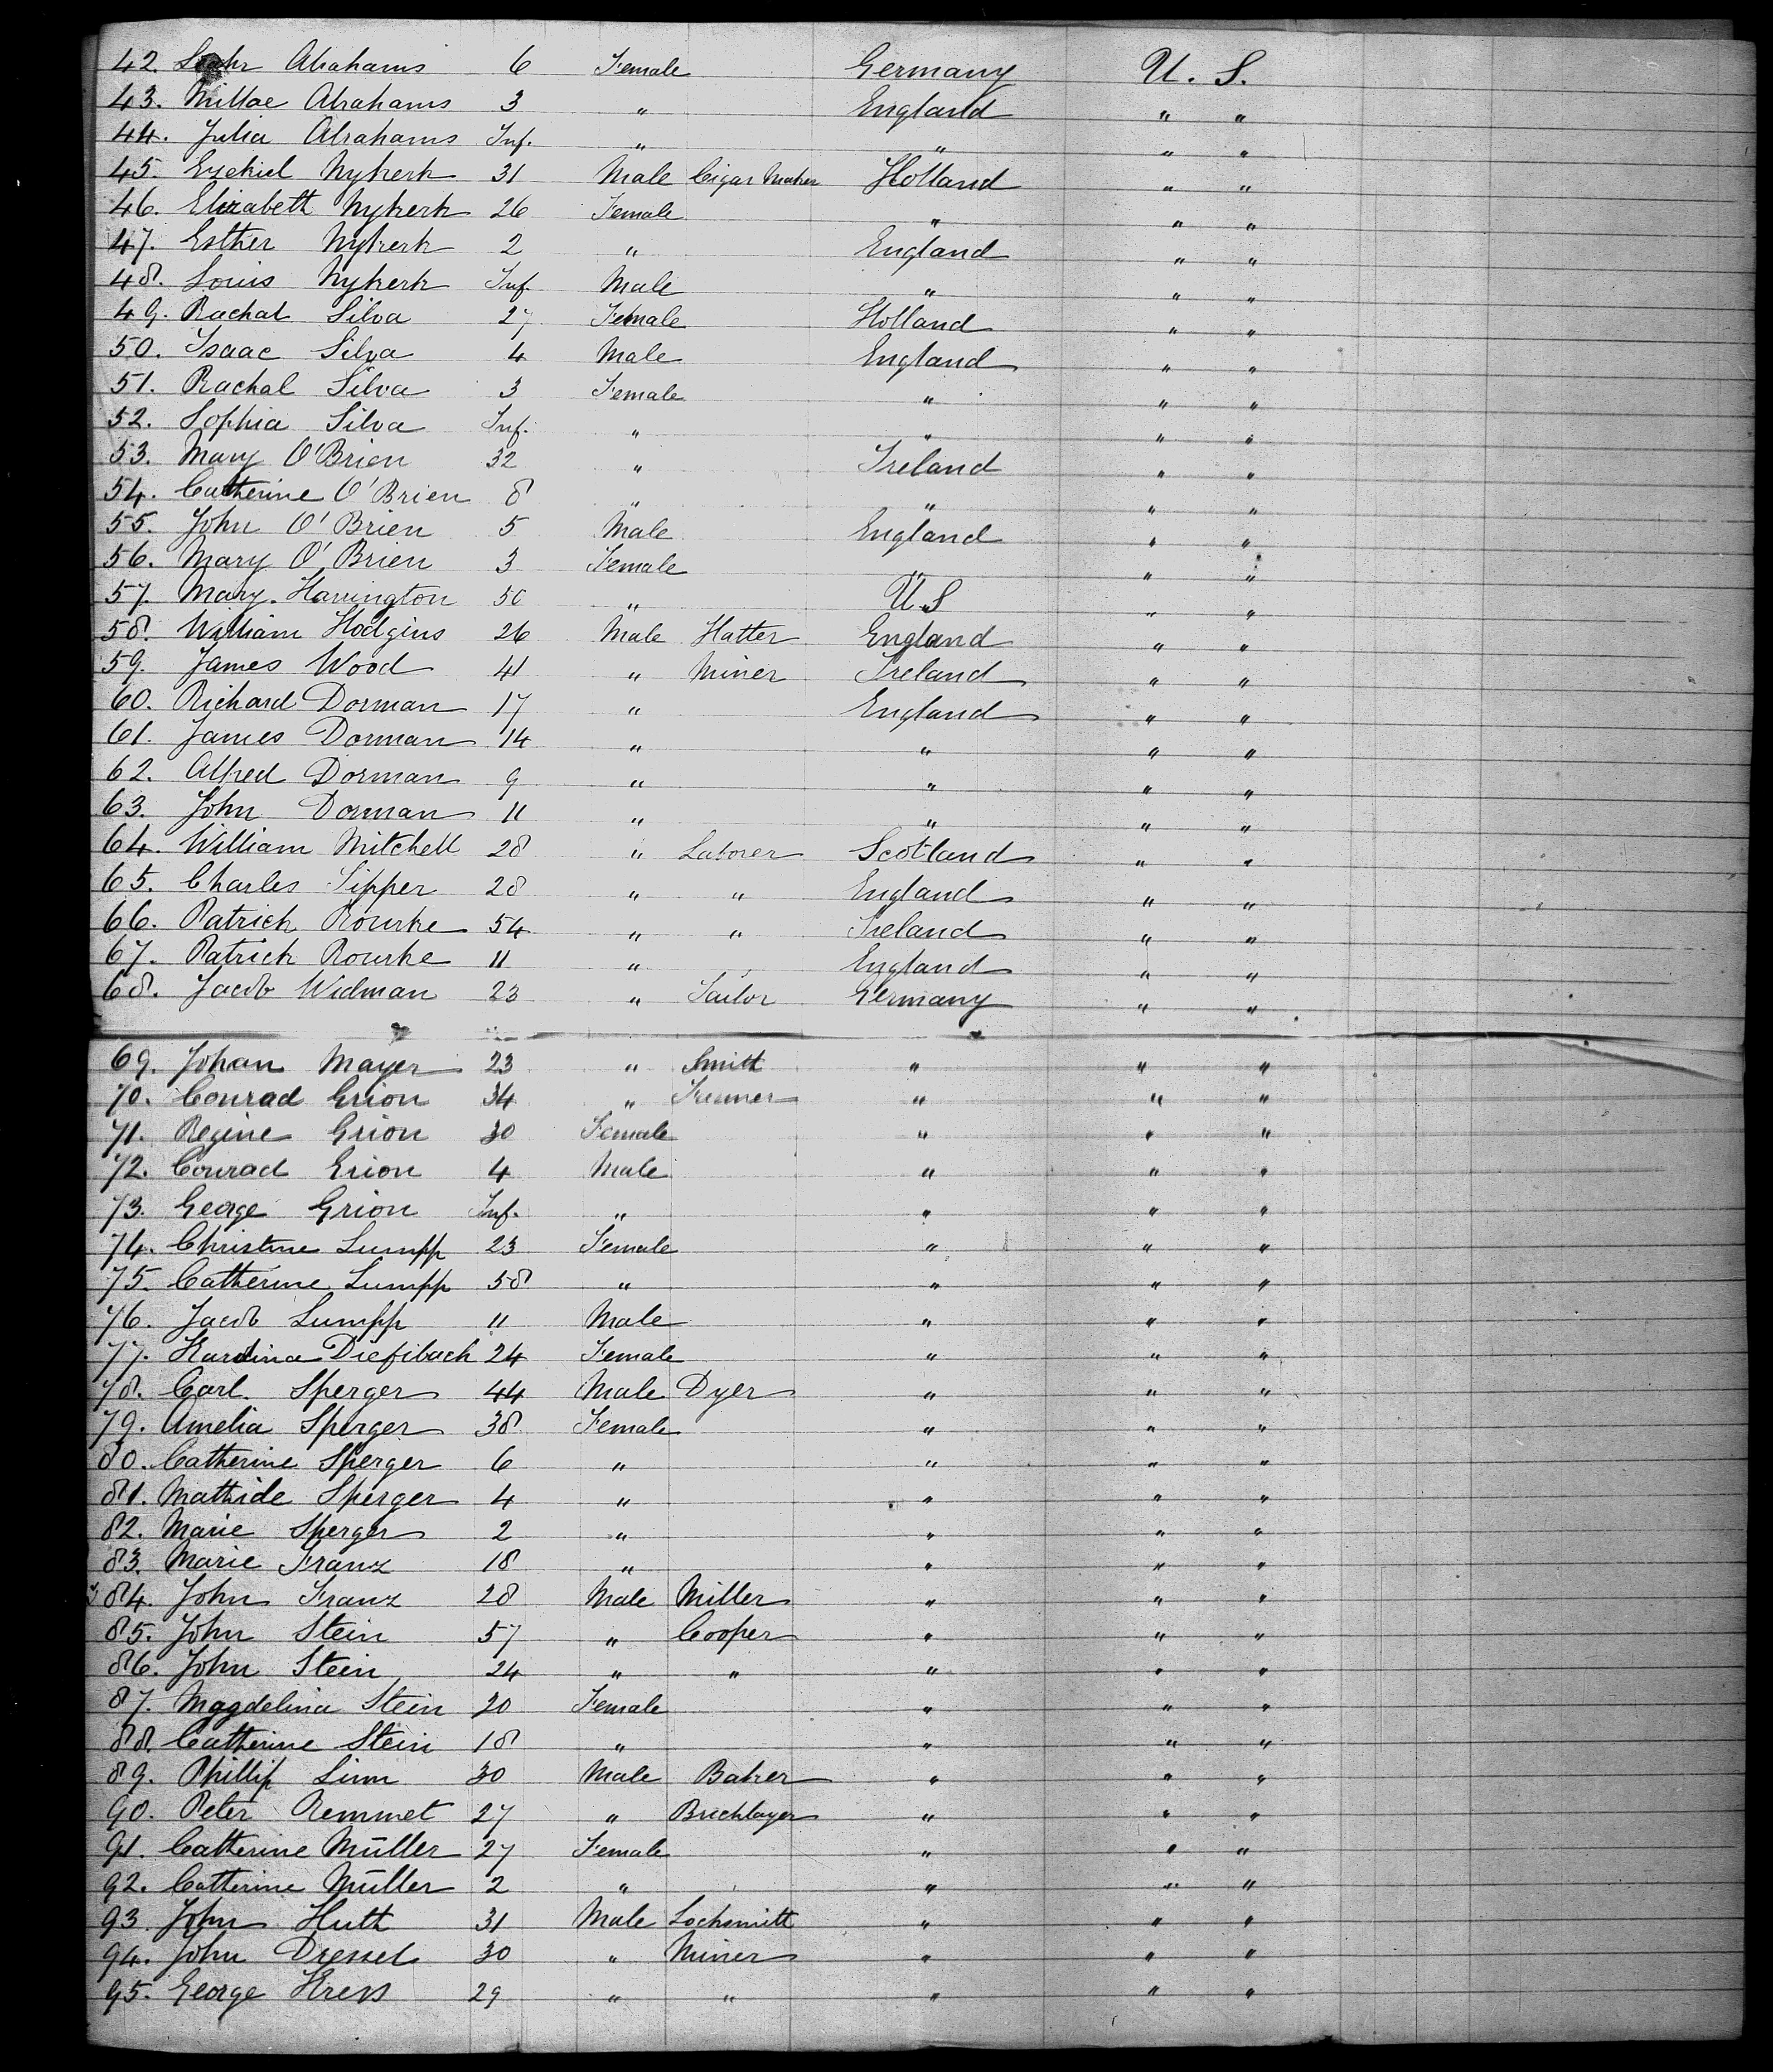 42. Abrahams 6 Female Germany U. S.
43. Millae Abrahams 3 " England " "
44. Julia Abrahams Inf. " " " "
45. Ezekiel Nykerk 31 Male Cigar Maker Holland " "
46. Elizabeth Nykerk 26 Female " " "
47. Esther Nykerk 2 " England " "
48. Louis Nykerk Inf. Male " " "
49. Rachal Silva 27 Female Holland " "
50. Isaac Silva 4 Male England " "
51. Rachal Silva 3 Female " " "
52. Sophia Silva Inf. " " " "
53. Mary O'Brien 32 " Ireland " "
54. Catherine O'Brien 8 " " " "
55. John O'Brien 5 Male England " "
56. Mary O'Brien 3 Female " " "
57. Mary Harrington 50 " U.S " "
58. William Hodgins 26 Male Hatter England " "
59. James Wood 41 " Miner Ireland " "
60. Richard Dorman 17 " England " "
61. James Dorman 14 " " " "
62. Alfred Dorman 9 " " " "
63. John Dorman 11 " " " "
64. William Mitchell 28 " Laborer Scotland " "
65. Charles Sipper 28 " " England " "
66. Patrick Rourke 54 " " Ireland " "
67. Patrick Rourke 11 " England " "
68. Jacob Widman 23 " Sailor Germany " "
69. Johan Mayer 23 " Smith " " "
70. Conrad Grion 34 " " " "
71. Regine Grion 30 Female " " "
72. Conrad Grion 4 Male " " "
73. George Grion Inf. " " " "
74. Christine Lumpp 23 Female " " "
75. Catherine Lumpp 58 " " " "
76. Jacob Lumpp 11 Male " " "
77. Diefibach 24 Female " " "
78. Carl. Sperger 44 Male Dyer " " "
79. Amelia Sperger 38 Female " " "
80. Catherine Sperger 6 " " " "
81. Mathide Sperger 4 " " " "
82. Marie Sperger 2 " " " "
83. Marie Franz 18 " " " "
84. John Franz 28 Male Miller " " "
85. John Stein 57 " Cooper " " "
86. John Stein 24 " " " " "
87. Magdelina Stein 20 Female " " "
88. Catherine Stein 18 " " " "
89. Phillip Linn 30 Male Baker " " "
90. Peter Remmet 27 " Bricklayer " " "
91. Catherine Müller 27 Female " " "
92. Catherine Müller 2 " " " "
93. John Huth 31 Male Locksmith " " "
94. John Dressel 30 " Miner " " "
95. George Kress 29 " " " " "